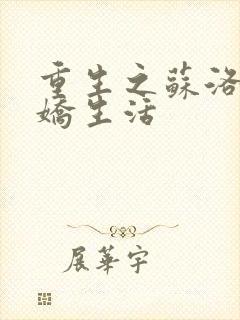 重生之蘇洛
嬌生活
展華宇